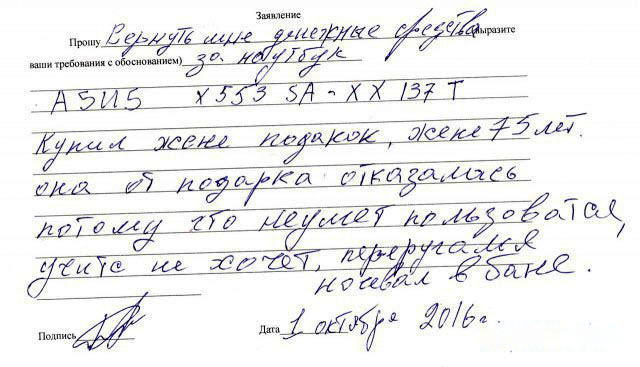 Заявление
Прошу Вернуть мне денежные средства (выразите
ваши требования с обоснованием) за ноутбук
ASUS X553 SA-XX 137 T
Купил жене подакок, жене 75 лет.
она от подарка отказалась
потому что неумет пользоватся,
учитс не хочет, переругался
ночевал в бане.
Подпись Дата 1 октября 2016 г.